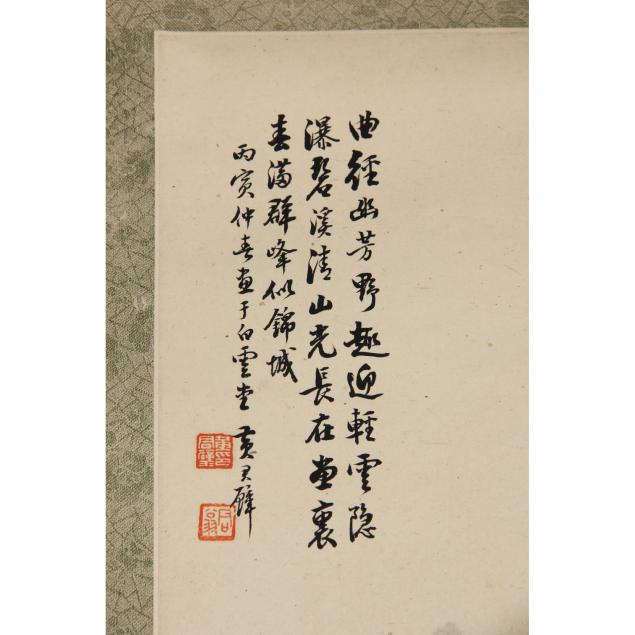 曲徑幽芳野趣迎輕雲隐
瀑碧溪清山光長在畫裏
春滿群峰似錦城
丙寅仲春畫于白雲堂 黃君璧
黃印君璧
君翁